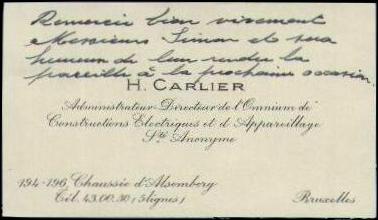 Remercie bien vivement
Monsieur Simon et sera
heureux de leur rendre la
pareille à la prochaine occasion.
H. CARLIER
Administrateur-Directeur de l'Omnium de
Constructions Electriques et d'Appareillage
Sté Anonyme
194-196, Chaussée d'Alsemberg
Tél. 43.00.30 (5 lignes)
Bruxelles